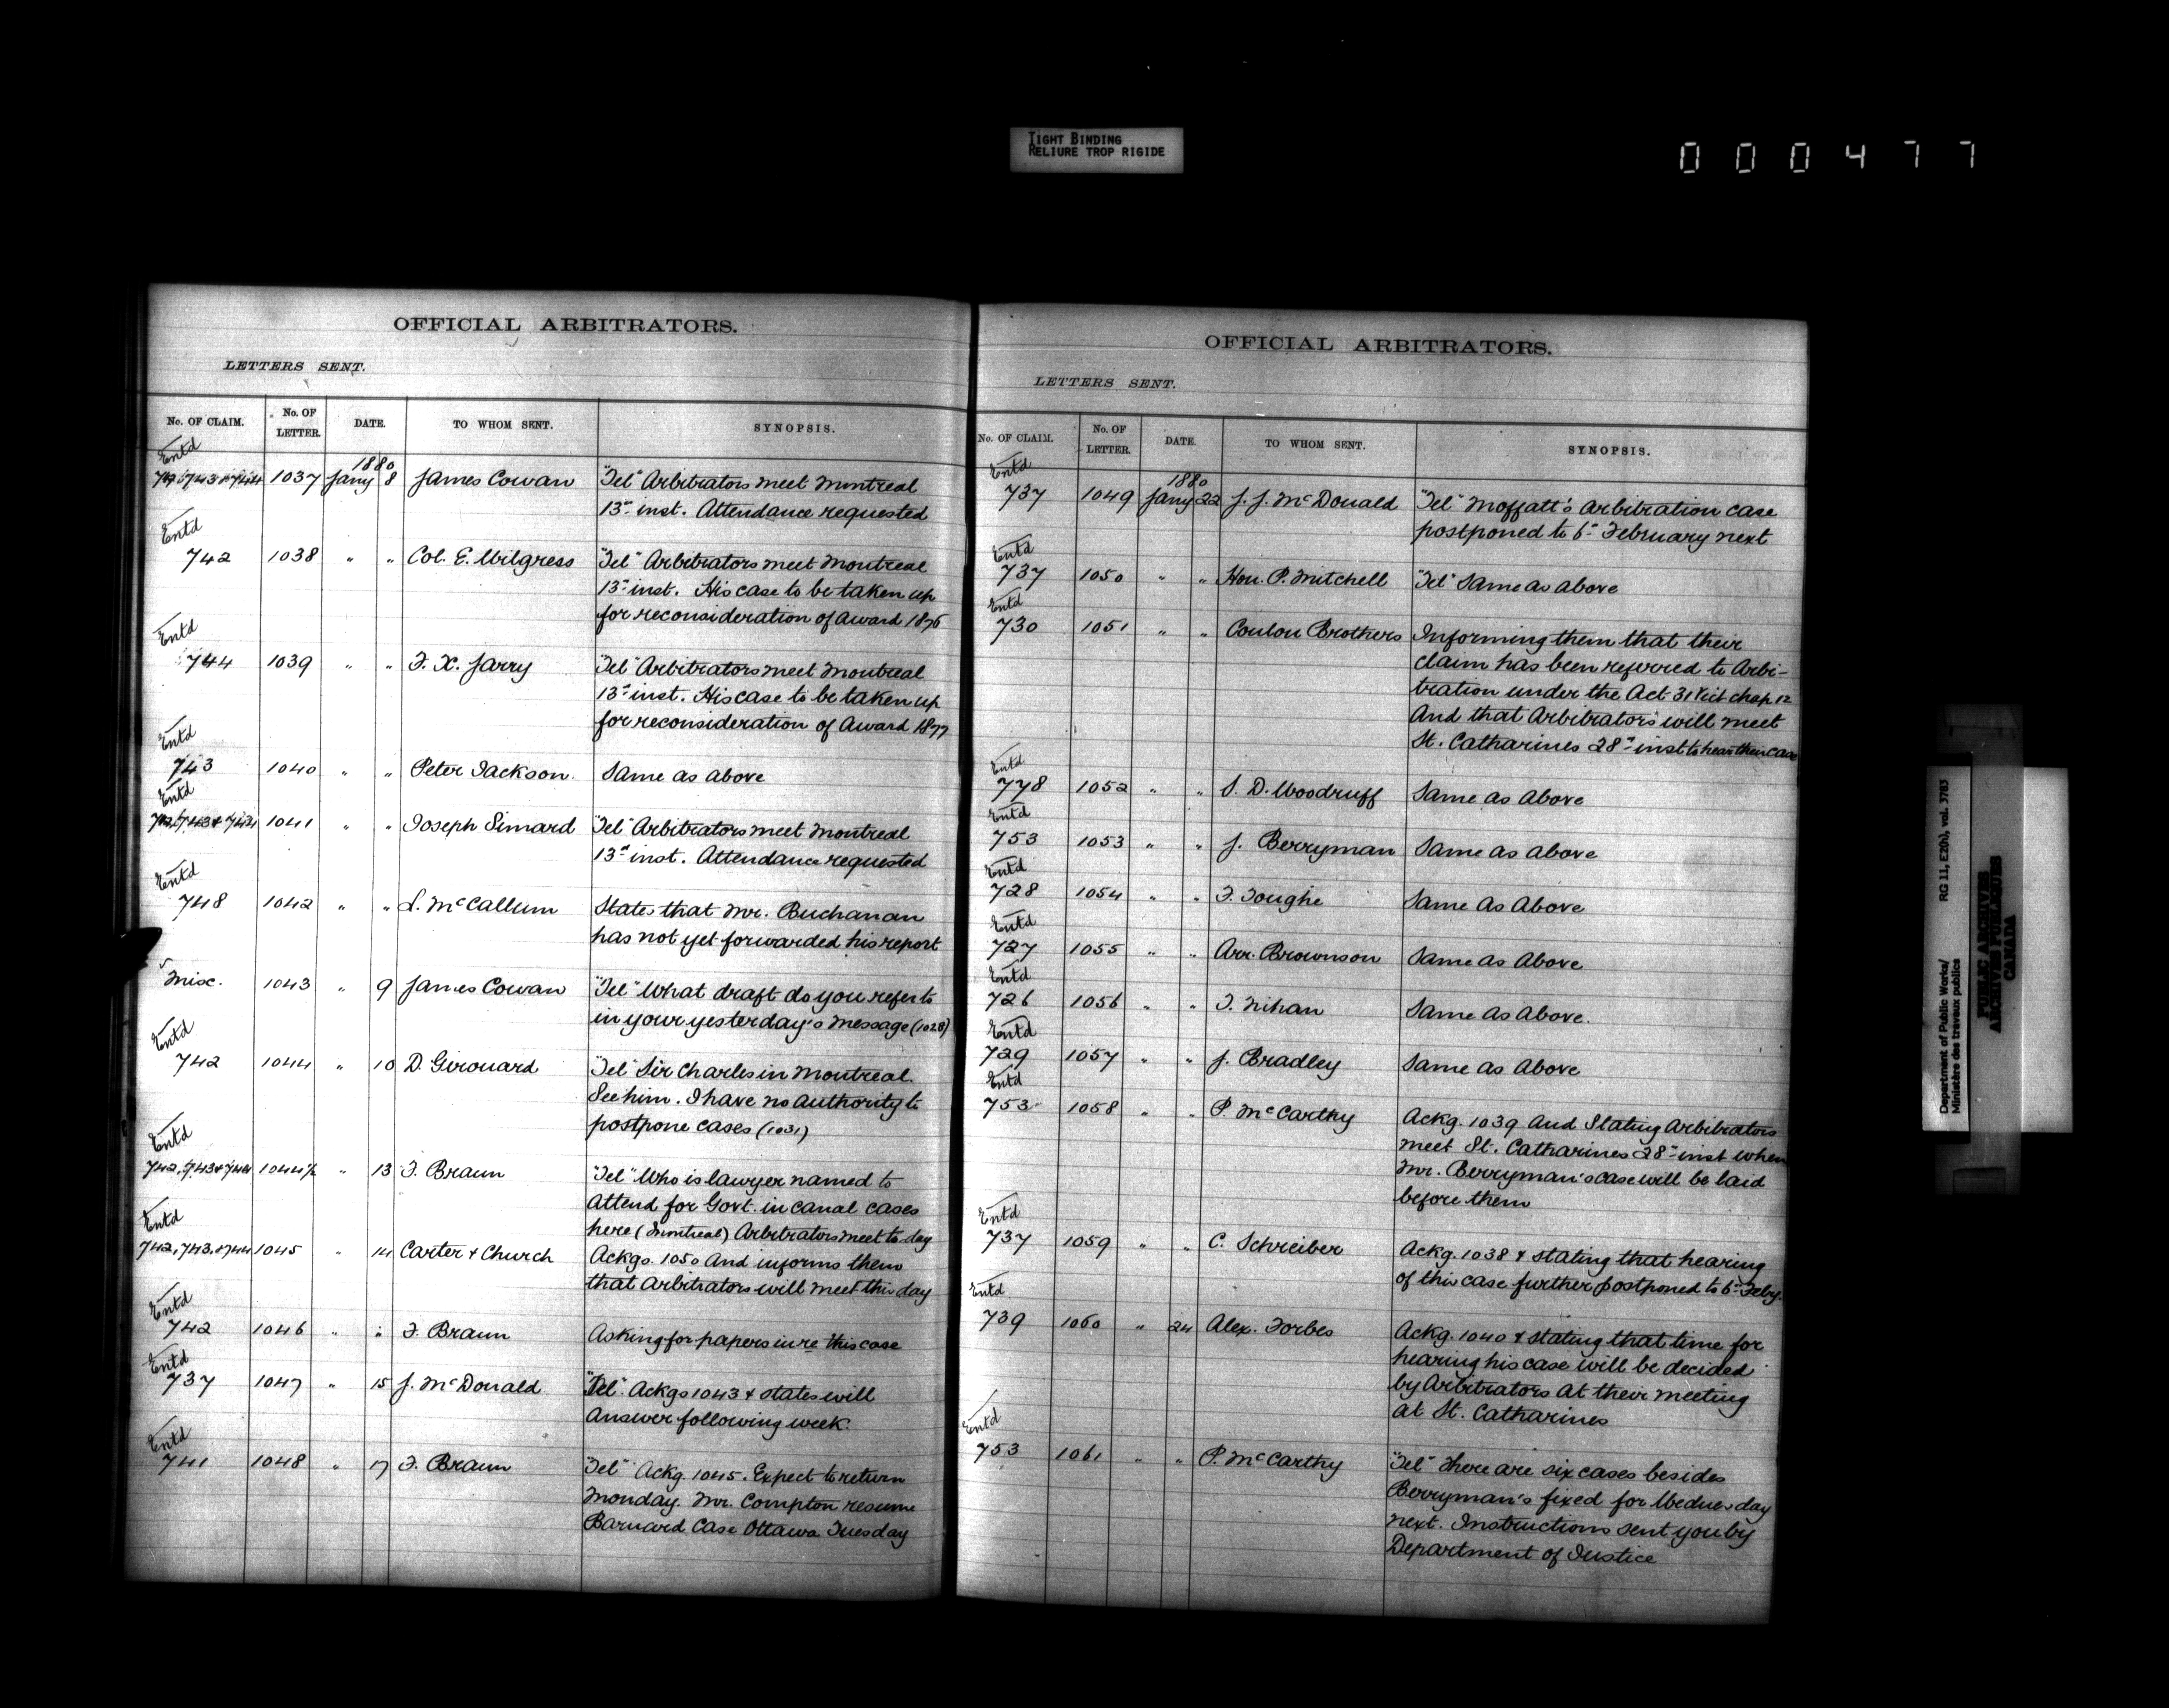 TIGHT BINDING
RELIURE TROP RIGIDE
000477
OFFICIAL ARBITRATORS.
LETTERS SENT.
No. OF CLAIM. No. OF LETTER. DATE. TO WHOM SENT. SYNOPSIS.
Entd 1880
742, 743 & 744 1037 Jany 8 James Cowan "Tel" Arbitrators meet Montreal
13th inst. Attendance requested
Entd
742 1038 " " Col. E. Wilgress "Tel" Arbitrators meet Montreal
13th inst. His case to be taken up
for reconsideration of Award 1876
Entd
744 1039 " " F. X. Jarry "Tel" Arbitrators meet Montreal
13th inst. His case to be taken up
for reconsideration of Award 1877
Entd
743 1040 " " Peter Jackson. Same as above
Entd
742, 743 & 744 1041 " " Joseph Simard "Tel" Arbitrators meet Montreal
13th inst. Attendance requested
Entd
748 1042 " " L. McCallum States that Mr. Buchanan
has not yet forwarded his report
Misc. 1043 " 9 James Cowan "Tel" What draft do you refer to
in your yesterday's message (1028)
Entd
742 1044 " 10 D. Girouard "Tel" Sir Charles in Montreal.
See him. I have no authority to
postpone cases (1031)
Entd
742, 743 & 744 1044½ " 13 F. Braun "Tel" Who is lawyer named to
Attend for Govt. in canal cases
here (Montreal) Arbitrators meet to-day
Entd
742, 743, & 744 1045 " 14 Carter & Church Ackgs. 1050 And informs them
that Arbitrators will meet this day
Entd
742 1046 " " F. Braun Asking for papers in re this case
Entd
737 1047 " 15 J. McDonald "Tel". Ackgs 1043 & states will
Answer following week.
Entd
741 1048 " 17 F. Braun "Tel" Ackg. 1045. Expect to return
Monday. Mr. Compton resume
Barnard Case Ottawa Tuesday
OFFICIAL ARBITRATORS.
LETTERS SENT.
No. OF CLAIM. No. OF LETTER. DATE. TO WHOM SENT. SYNOPSIS.
Entd 1880
737 1049 Jany 22 J. J. McDonald "Tel" Moffatt's Arbitration case
postponed to 6th February next
Entd
737 1050 " " Hon. P. Mitchell "Tel" Same as above
Entd
730 1051 " " Conlon Brothers Informing them that their
claim has been referred to Arbi-
tration under the Act 31 Vict chap 12
And that Arbitrators will meet
St. Catharines 28th inst to hear their case
Entd
778 1052 " " S. D. Woodruff Same as Above
Entd
753 1053 " " J. Berryman Same as Above
Entd
728 1054 " " F. Toughe Same As Above
Entd
727 1055 " " Arr. Brownson Same as Above
Entd
726 1056 " " T. Nihan Same As Above.
Entd
729 1057 " " J. Bradley Same as Above
Entd
753 1058 " " P. McCarthy Ackg. 1039 And Stating Arbitrators
meet St. Catharines 28th inst when
Mr. Berryman's case will be laid
before them
Entd
737 1059 " " C. Schreiber Ackg. 1038 & stating that hearing
of this case further postponed to 6th Feby.
Entd
739 1060 " 24 Alex. Forbes Ackg. 1040 & stating that time for
hearing his case will be decided
by Arbitrators At their meeting
at St. Catharines
Entd
753 1061 " " P. McCarthy "Tel" There are six cases besides
Berryman's fixed for Wednesday
next. Instructions sent you by
Department of Justice
Department of Public Works/ RG 11, E20(), vol. 3783
Ministère des travaux publics
PUBLIC ARCHIVES
ARCHIVES PUBLIQUES
CANADA